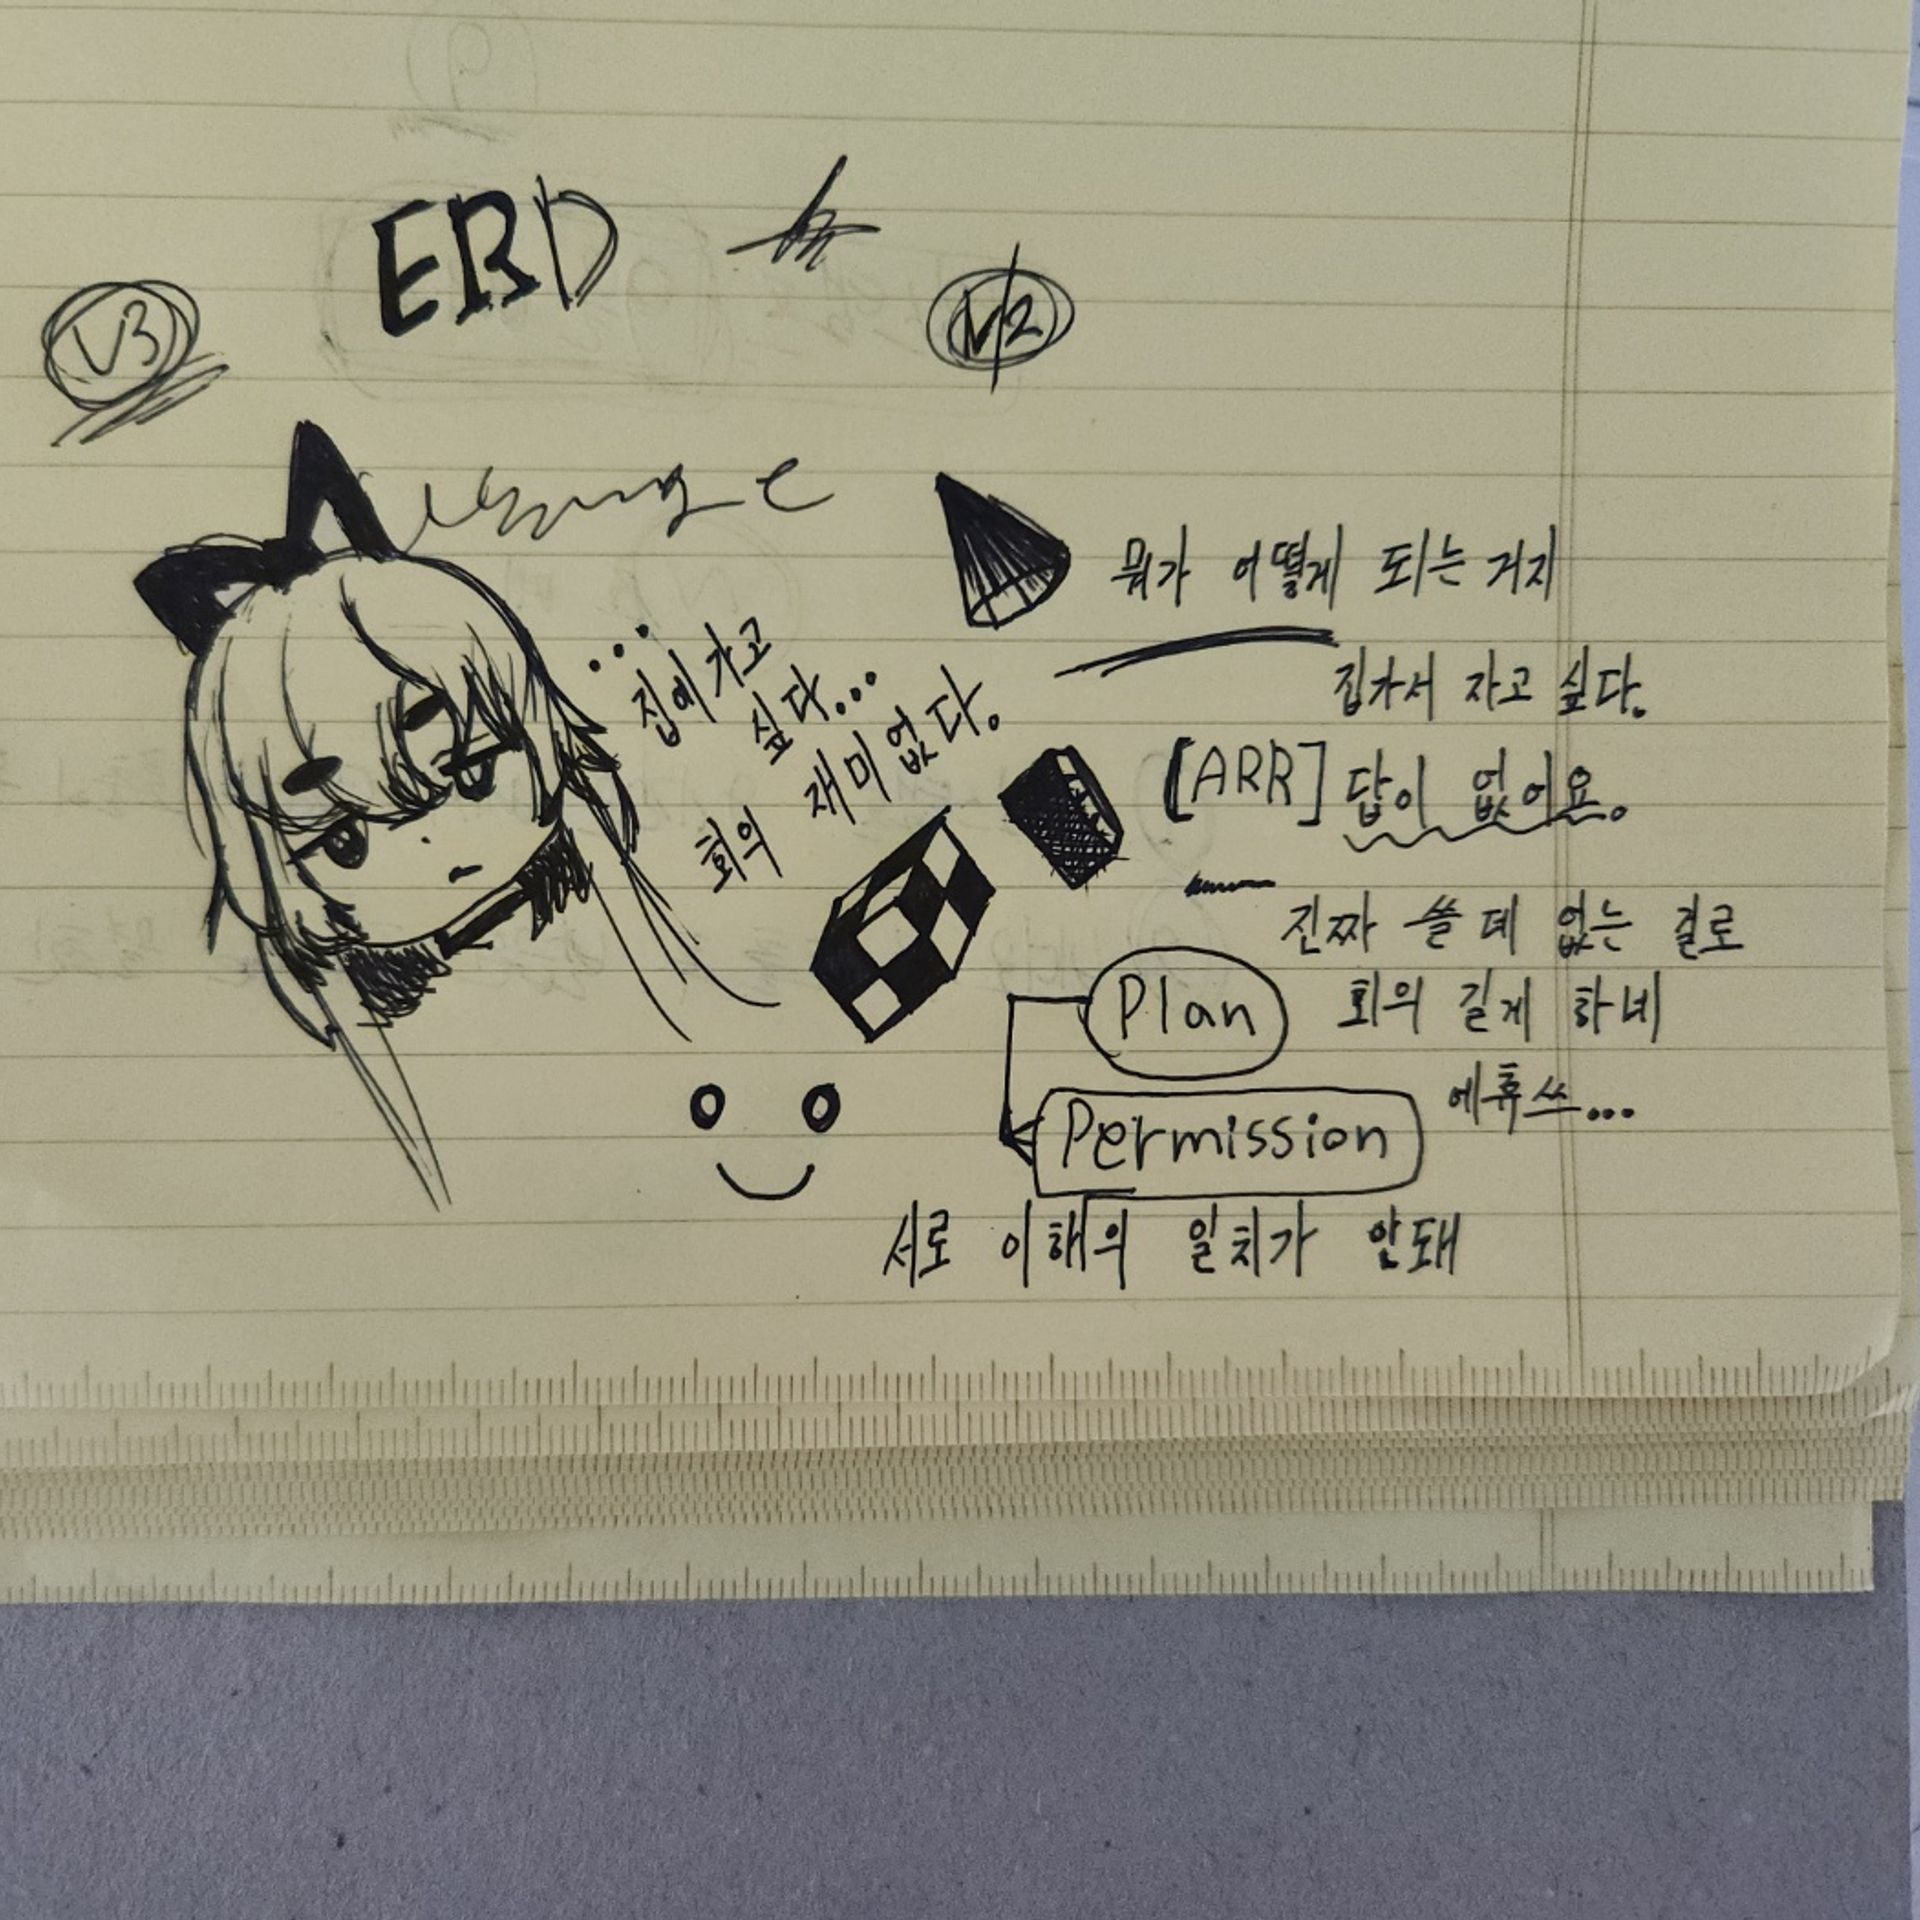 ERD
V3
V2
뭐가 어떻게 되는거지
... 집에 가고
싶다...
회의 재미없다.
집가서 자고 싶다.
[ARR] 답이 없어요.
진짜 쓸 데 없는 걸로
회의 길게 하네
에휴쓰...
Plan
Permission
서로 이해의 일치가 안돼